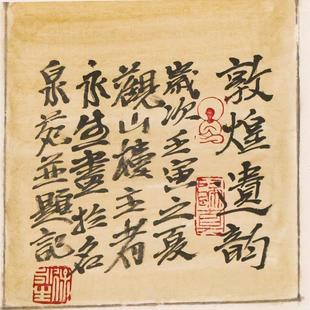 敦煌遺韵
歲次壬寅之夏
觀山樓主者
永生畫於名
泉苑並題記